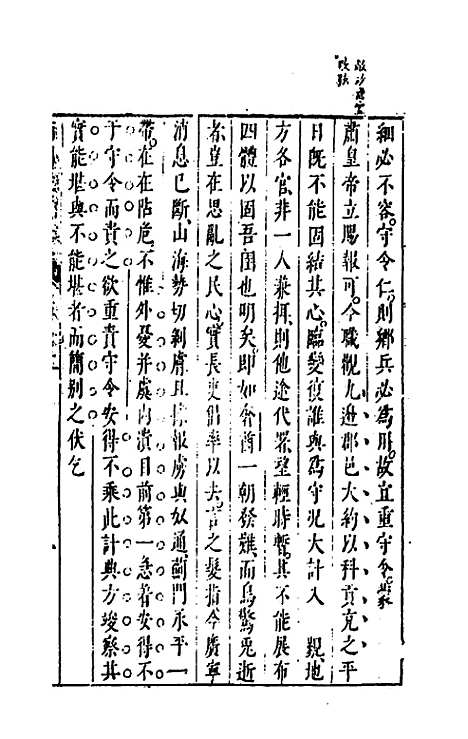 細必不容守令仁則鄉兵必為用故宜重守令蒙
肅皇帝立賜報可今職觀九邊郡邑大約以科貢充之平
日既不能固結其心臨變復誰與為守況大計入 覲地
方各官非一人兼攝則他途代署望輕時暫其不能展布
四體以固吾圉也明矣即如奢酋一朝發難而鳥驚兎逝
者豈在思亂之民心實長吏倡率以去言之髮指今廣寧
消息已斷山海勢切剝膚且據報虜與奴通薊門永平一
帶在在阽危不惟外憂并虞內潰目前第一急着安得不
于守令而責之欲重責守令安得不乘此計典方竣察其
實能堪與不能堪者而簡別之伏乞